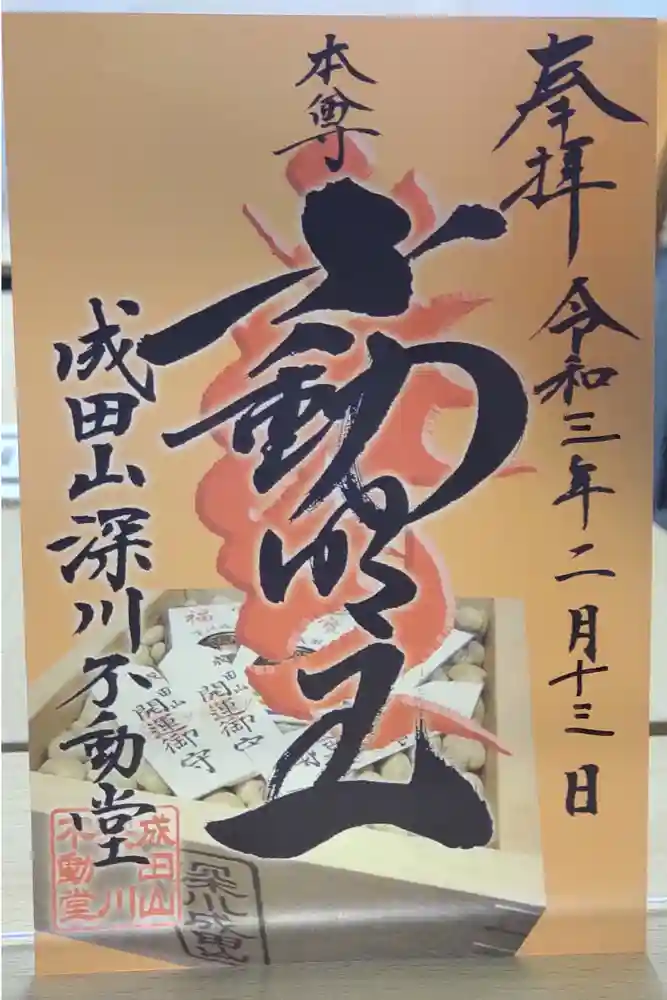 奉拝
令和三年二月十三日
本尊
不動明王
成田山深川不動堂
成田山
深川
不動堂
開運御守
開運御守
成田山
福
深川成田山